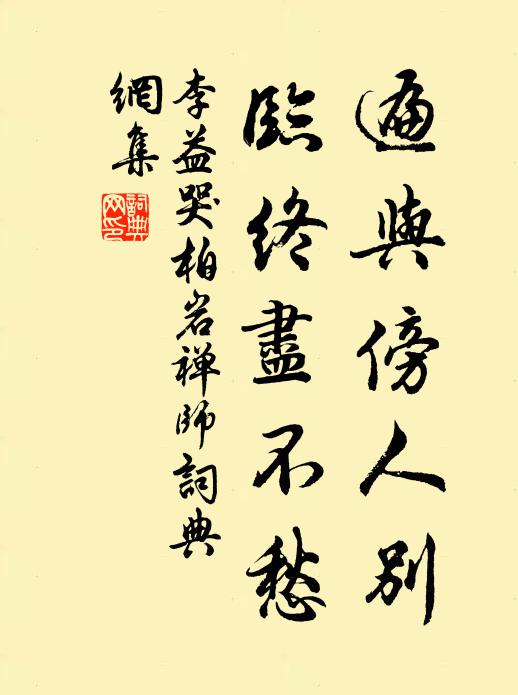 遍與傍人別
臨終盡不愁
李益哭柏岩禅師詞典
網集
詞典
网印